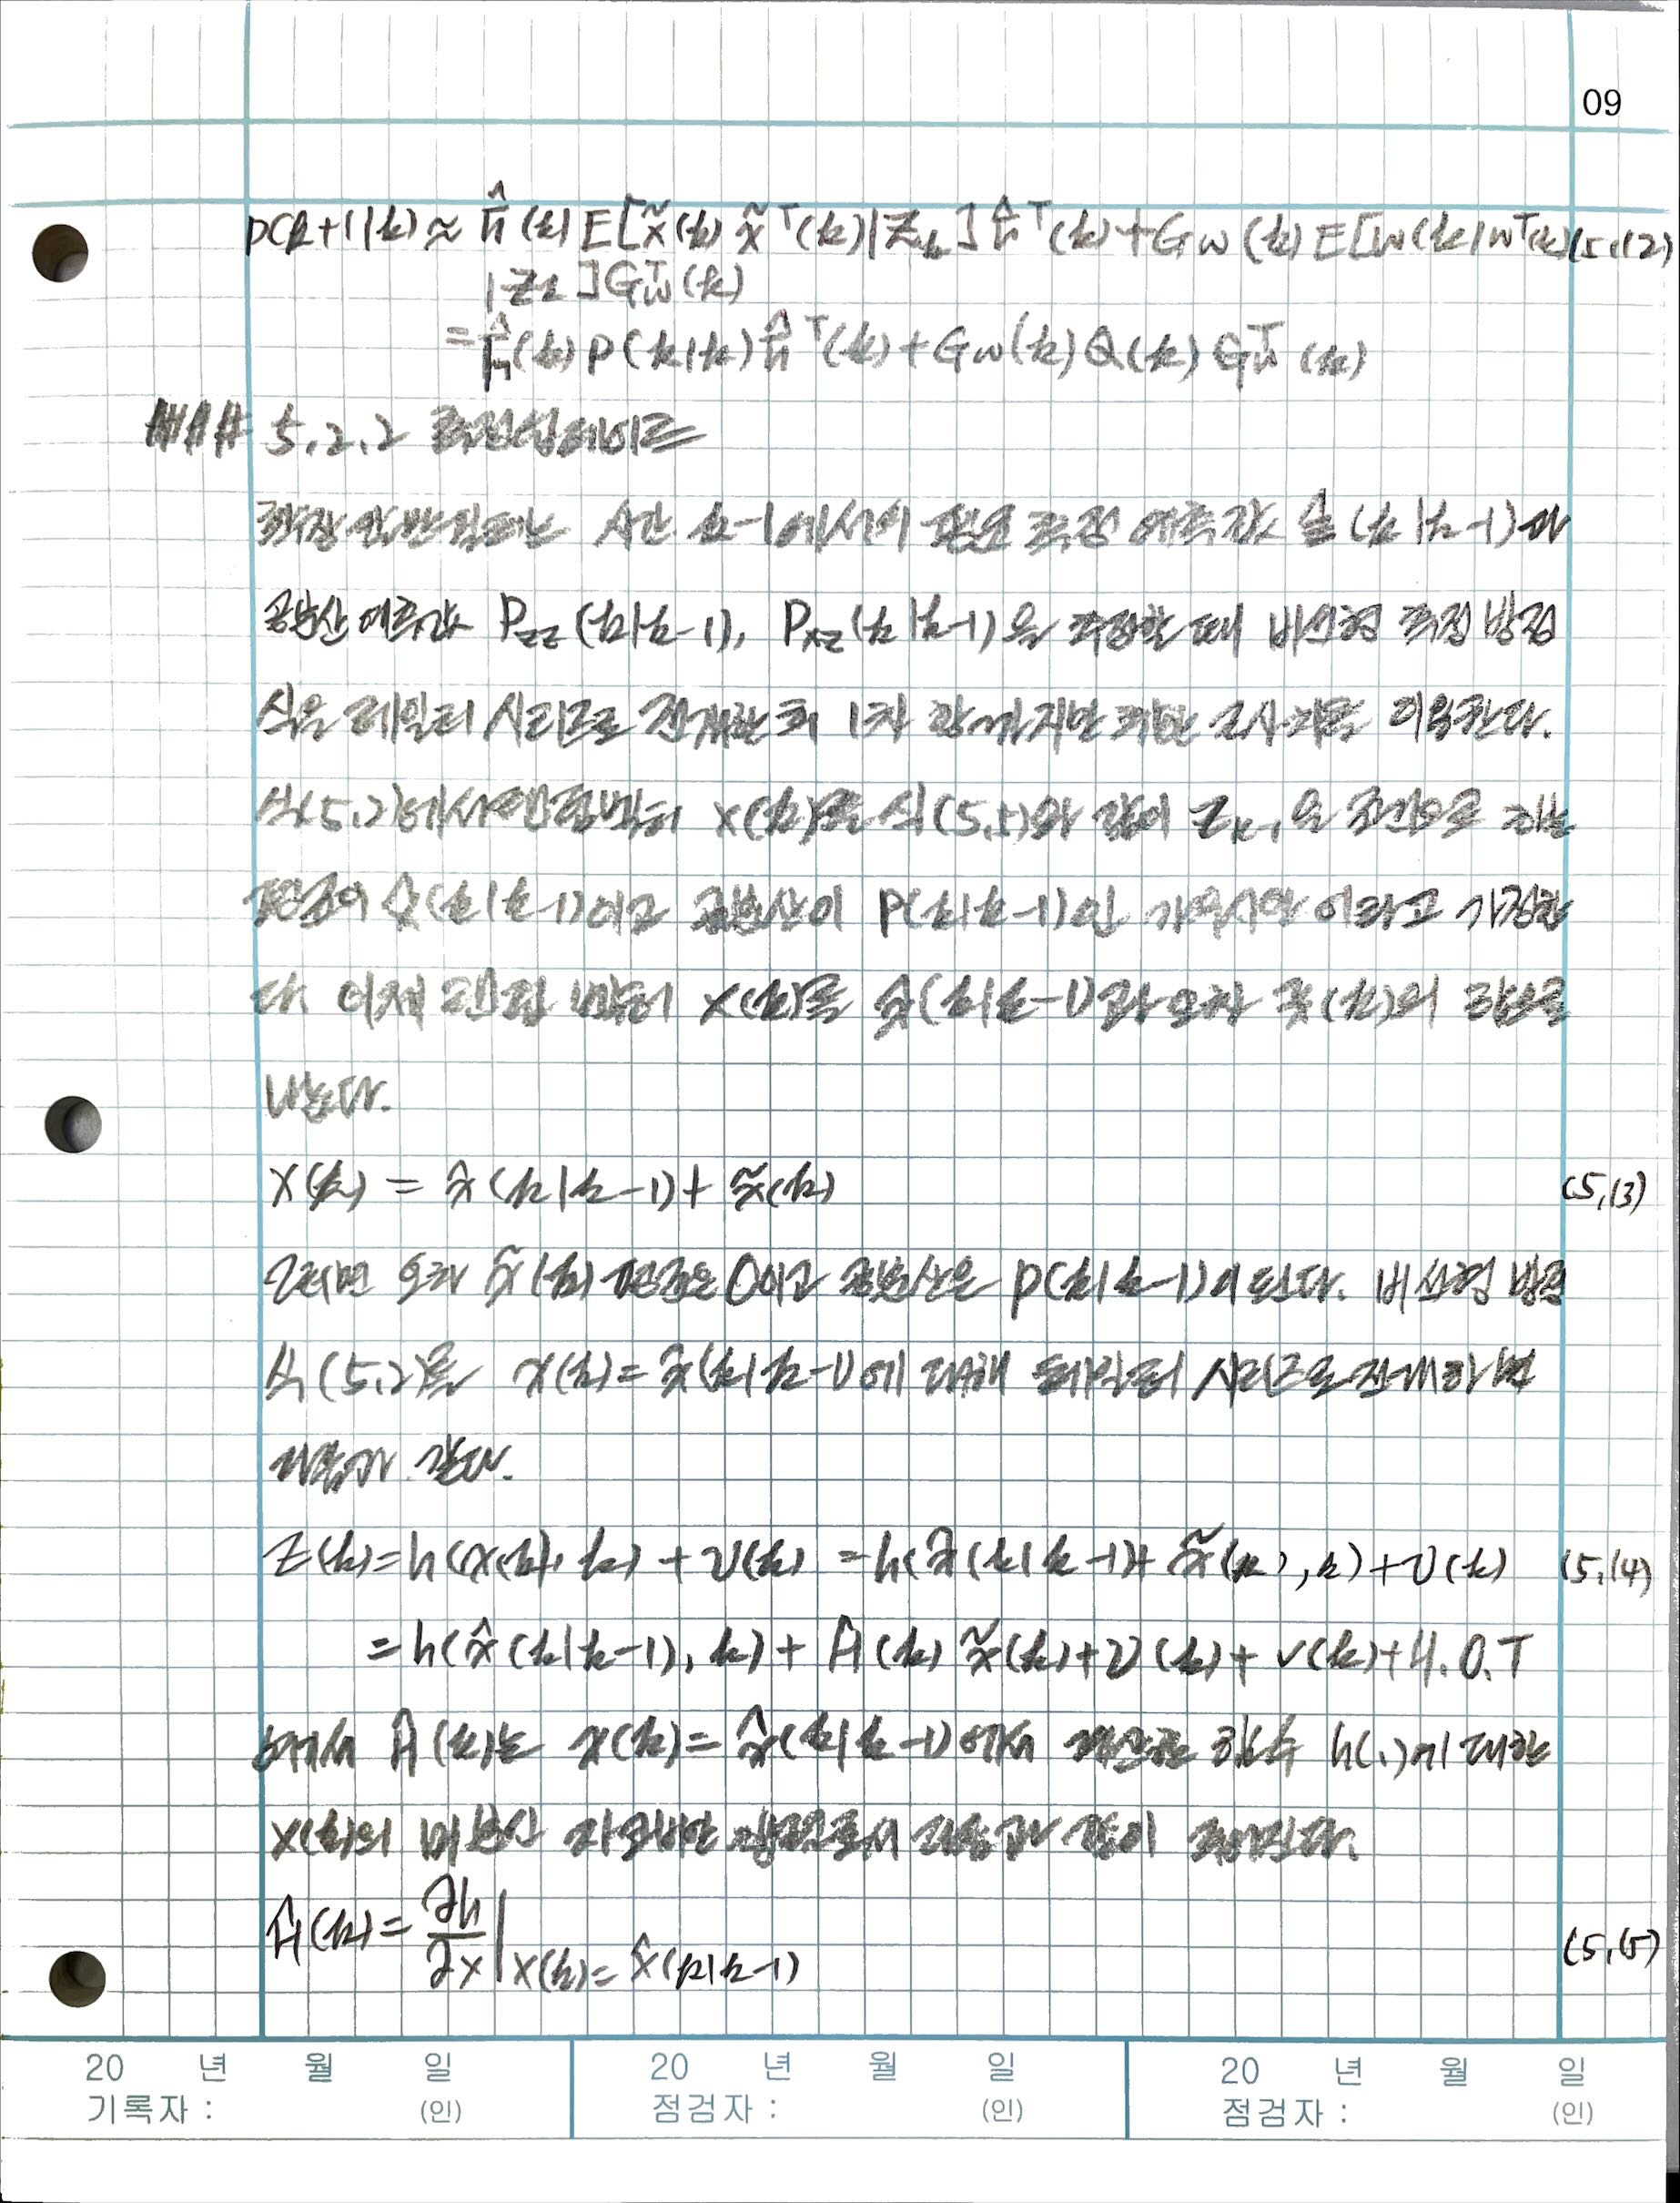 09
P(k+1|k) ≈ F̂(k) E[x̃(k) x̃ᵀ(k)|Z_k] F̂ᵀ(k) + G_w(k) E[w(k) wᵀ(k) (5.12)
|Z_k] G_wᵀ(k)
= F̂(k) P(k|k) F̂ᵀ(k) + G_w(k) Q(k) G_wᵀ(k)
### 5.2.2 측정업데이트
확장 칼만필터는 시간 k-1에서의 필요 측정 예측값 ẑ(k|k-1)과
공분산 예측값 P_zz(k|k-1), P_xz(k|k-1)을 계산할 때 비선형 측정 방정
식을 테일러 시리즈로 전개한 후 1차 항까지만 취한 근사식을 이용한다.
식(5.2)에서 랜덤벡터 x(k)를 식(5.5)와 같이 Z_k-1을 조건으로 하는
평균이 x̂(k|k-1)이고 공분산이 P(k|k-1)인 가우시안 이라고 가정한
다. 이제 랜덤 벡터 x(k)를 x̂(k|k-1)과 오차 x̃(k)의 합으로
나눈다.
x(k) = x̂(k|k-1) + x̃(k) (5.13)
그러면 오차 x̃(k) 평균은 0이고 공분산은 P(k|k-1)이 된다. 비선형 방정
식(5.2)를 x(k) = x̂(k|k-1)에 대해 테일러 시리즈로 전개하면
다음과 같다.
z(k) = h(x(k), k) + v(k) = h(x̂(k|k-1) + x̃(k), k) + v(k) (5.14)
= h(x̂(k|k-1), k) + Ĥ(k) x̃(k) + v(k) + v(k) + H.O.T
여기서 Ĥ(k)는 x(k) = x̂(k|k-1)에서 계산한 함수 h(.)에 대한
x(k)의 미분인 자코비안 행렬로서 다음과 같이 주어진다.
Ĥ(k) = ∂h/∂x | x(k) = x̂(k|k-1) (5.15)
20 년 월 일 20 년 월 일 20 년 월 일
기록자 : (인) 점검자 : (인) 점검자 : (인)